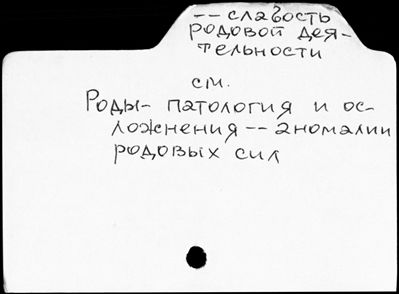 -- слабость
родовой дея-
тельности
см.
Роды- патология и ос-
ложнения -- аномалии
родовых сил